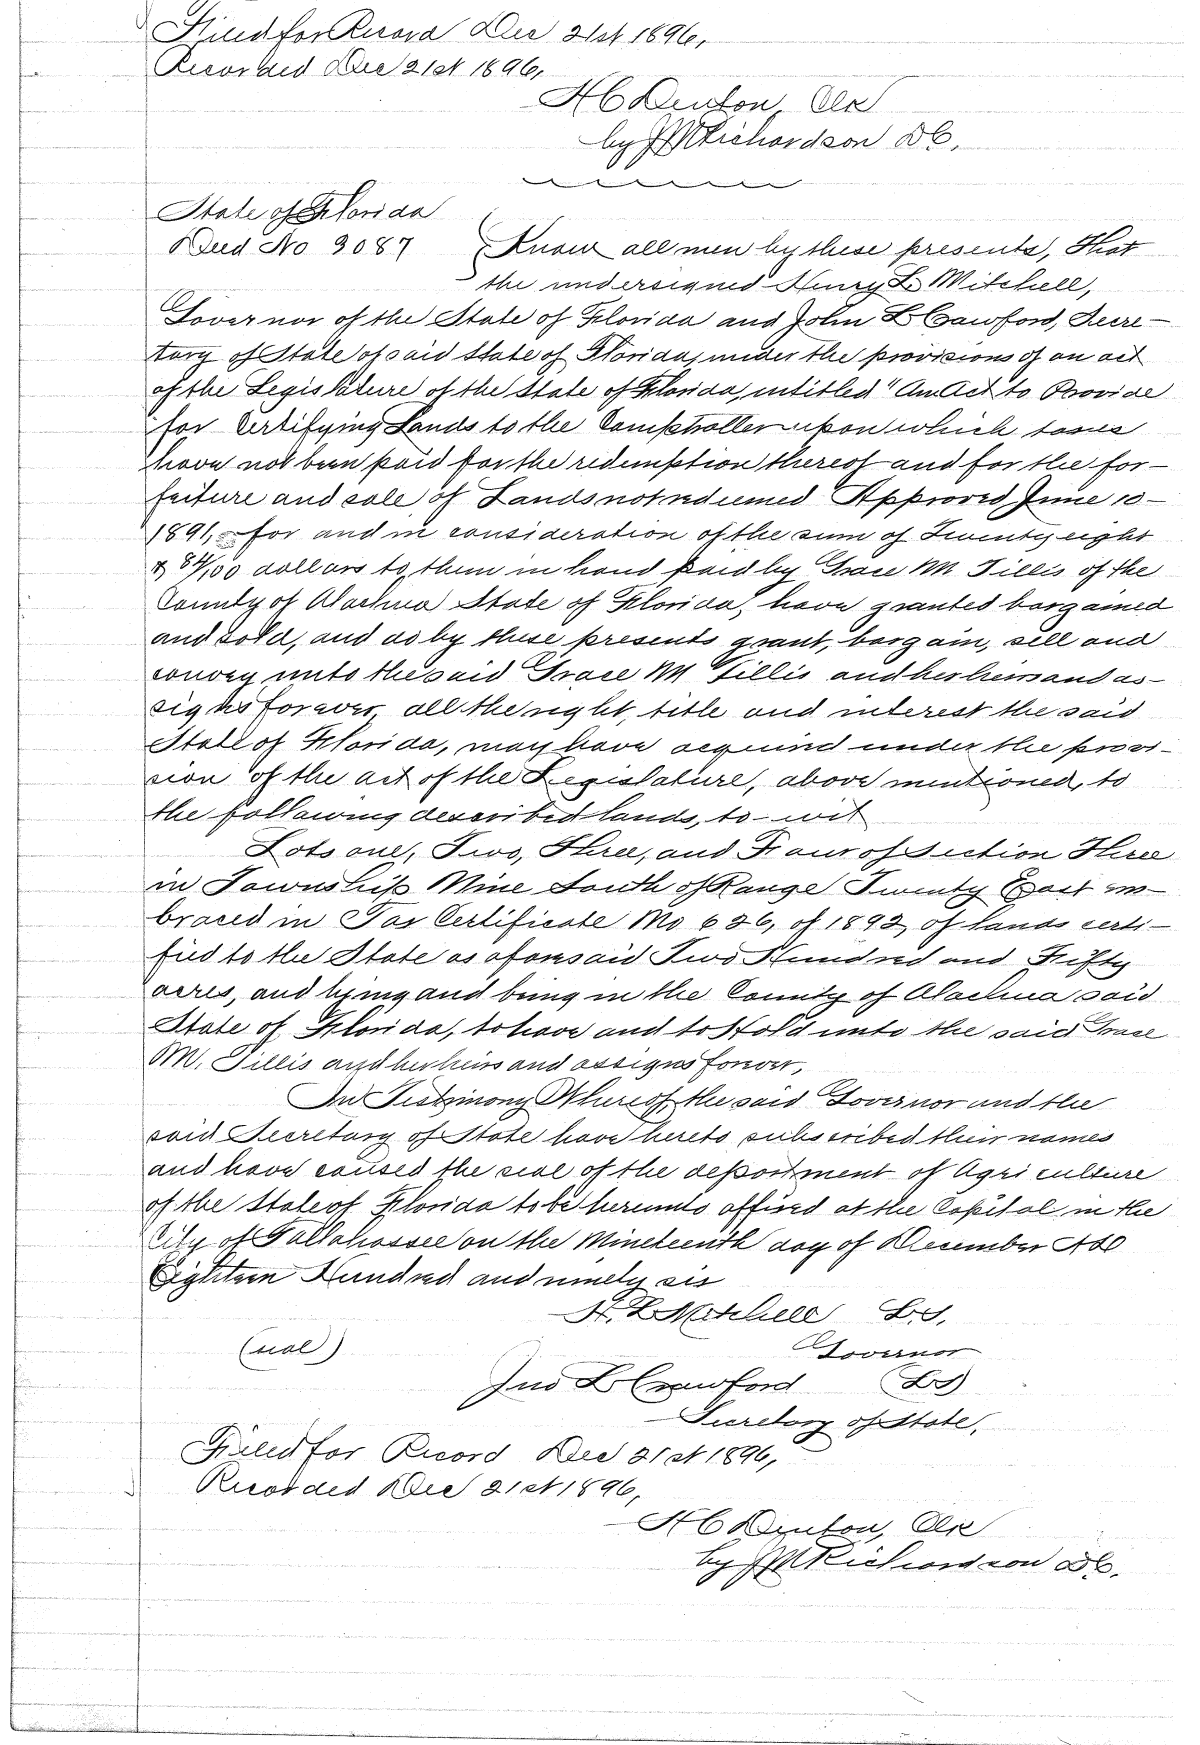 Filed for Record Dec 21st 1896,
Recorded Dec 21st 1896,
H C Denton, Clk
by J M Richardson D C.
State of Florida
Deed No 3087 Know all men by these presents, That
the undersigned Henry L. Mitchell,
Governor of the State of Florida and John L Cawford, Secre-
tary of State of said State of Florida, under the provisions of an act
of the Legislature of the State of Florida, intitled "An Act to Provide
for Certifying Lands to the Comptroller upon which taxes
have not been paid for the redemption thereof and for the for-
feiture and sale of Lands not redeemed" Approved June 10-
1891, for and in consideration of the sum of Twenty eight
& 84/100 dollars to them in hand paid by Grace M. Tillis of the
County of Alachua State of Florida, have granted bargained
and sold, and do by these presents grant, bargain, sell and
convey unto the said Grace M Tillis and her heirs and as-
signs forever, all the right, title and interest the said
State of Florida, may have acquired under the provi-
sion of the act of the Legislature, above mentioned, to
the following described lands, to-wit
Lots one, Two, Three, and Four of Section Three
in Township Nine South of Range Twenty East em-
braced in Tax Certificate No 626, of 1892, of lands certi-
fied to the State as aforesaid Two Hundred and Fifty
acres, and lying and being in the County of Alachua said
State of Florida, to have and to Hold unto the said Grace
M. Tillis and her heirs and assigns forever,
In Testimony Whereof, the said Governor and the
said Secretary of State have hereto subscribed their names
and have caused the seal of the department of Agriculture
of the State of Florida to be hereunto affixed at the Capital in the
City of Tallahassee on the Nineteenth day of December AD
Eighteen Hundred and ninety six
H. L. Mitchell L.S.
(seal) Governor
Jno L Crawford (LS)
Secretary of State,
Filed for Record Dec 21st 1896,
Recorded Dec 21st 1896,
H C Denton, Clk
by J M Richardson D C.